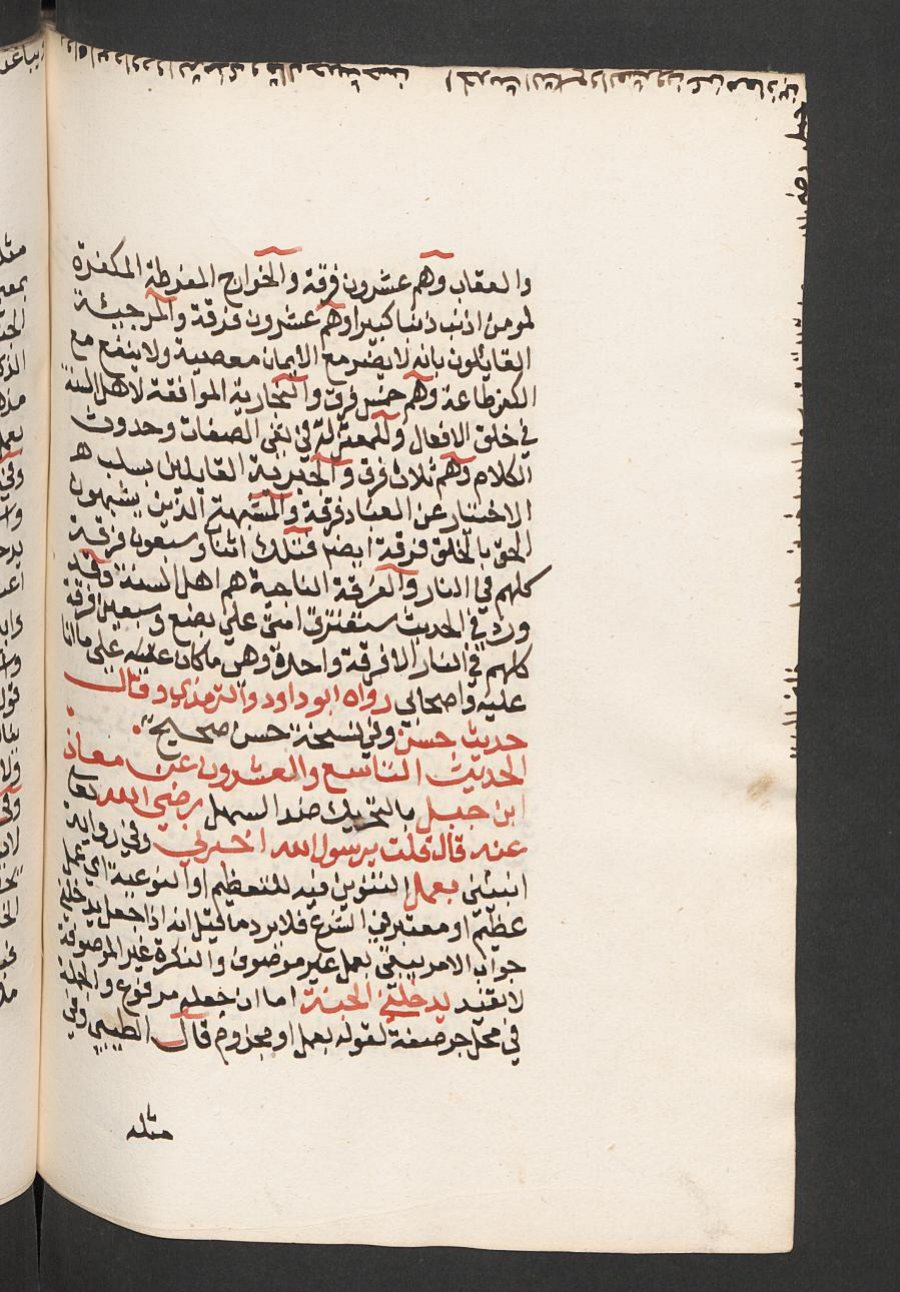 الحديث التاسع والعشرون عن معاذ بن
جبل رضي
والعقاب وهم عشرون فرقة والخوارج المفرطة المكفرة
لمومن اذنب ذنبا كبيرا وهم عشرون فرقة والمرجيئة
القايلون بانه لا يضر مع الايمان معصية ولا ينفع مع
الكفر طاعة وهم خمس فرق والنجارية الموافقة لاهل السنة
في خلق الافعال وللمعتزلة في نفى الصفات وحدوث
الكلام وهم ثلاث فرق والجبرية القايلين بسلب
الاختيار عن العباد فرقة والمشبهة الذين يشبهون
الحق بالخلق فرقة ايضا فتلك اثنان وسبعون فرقة
كلهم في النار والفرقة الناجية هم اهل السنة وقد
ورد في الحديث ستفترق امتي على بضع وسبعين فرقة
كلهم في النار الا فرقة واحدة وهي ما كان على ما انا
عليه واصحابي رواه ابو داود والترمذي وقال
حديث حسن وفي نسخة حسن صحيح
الحديث التاسع والعشرون عن معاذ
ابن جبل بالتحريك ضد السهل رضي الله تعا
عنه قال قلت يرسول الله اخبرني وفي رواية
انبئني بعمل التنوين فيه للتعظيم او النوعية اي عمل
عظيم او معتبر في الشرع فلا يرد ما قيل انه اذا جعل يدخلني
جواب الامر يبقى بعمل غير موضوف والنكرة غير الموصوفة
لا تفيد يدخلني الجنة اما ان جعله مرفوع والجملة
في محل جر صفة لقوله بعمل او مجزوم قال الطيبي وفي
مثله